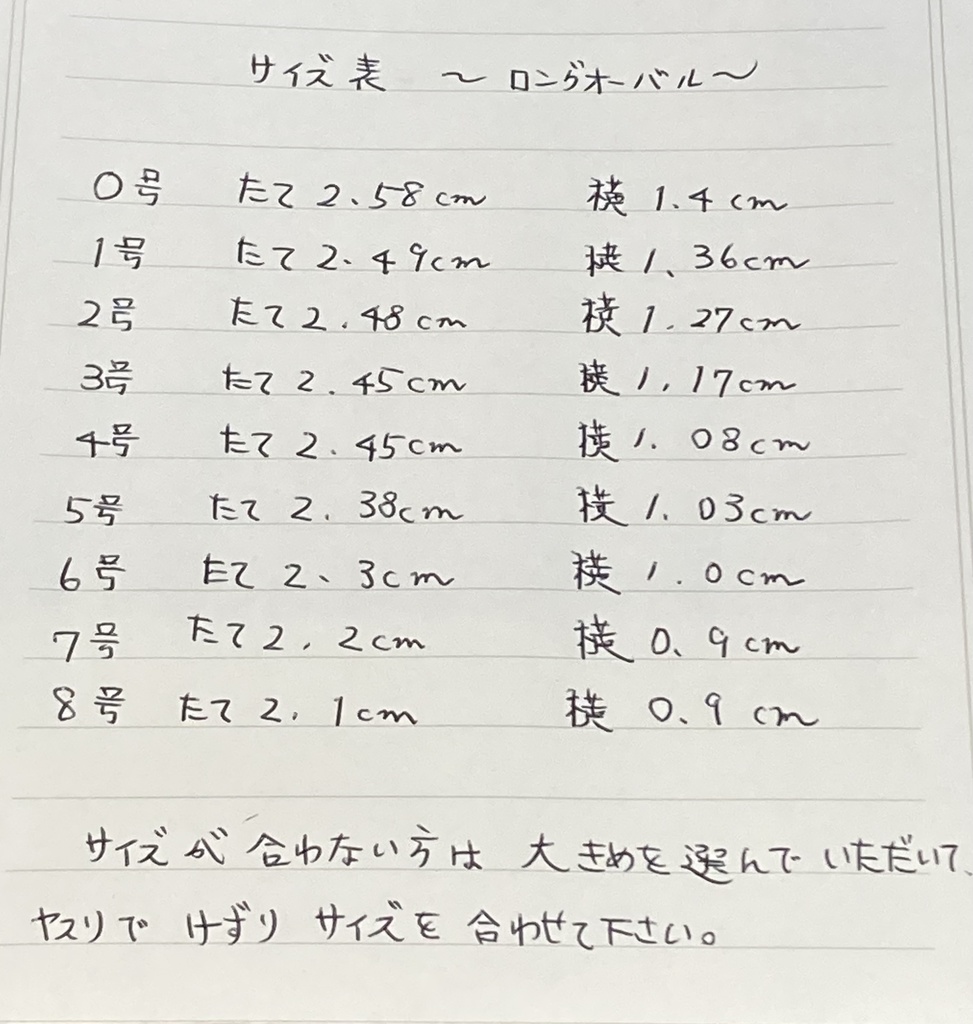 サイズ表 〜ロングオーバル〜
0号 たて2.58cm 横1.4cm
1号 たて2.49cm 横1.36cm
2号 たて2.48cm 横1.27cm
3号 たて2.45cm 横1.17cm
4号 たて2.45cm 横1.08cm
5号 たて2.38cm 横1.03cm
6号 たて2.3cm 横1.0cm
7号 たて2.2cm 横0.9cm
8号 たて2.1cm 横0.9cm
サイズが合わない方は大きめを選んでいただいて、
ヤスリでけずりサイズを合わせて下さい。